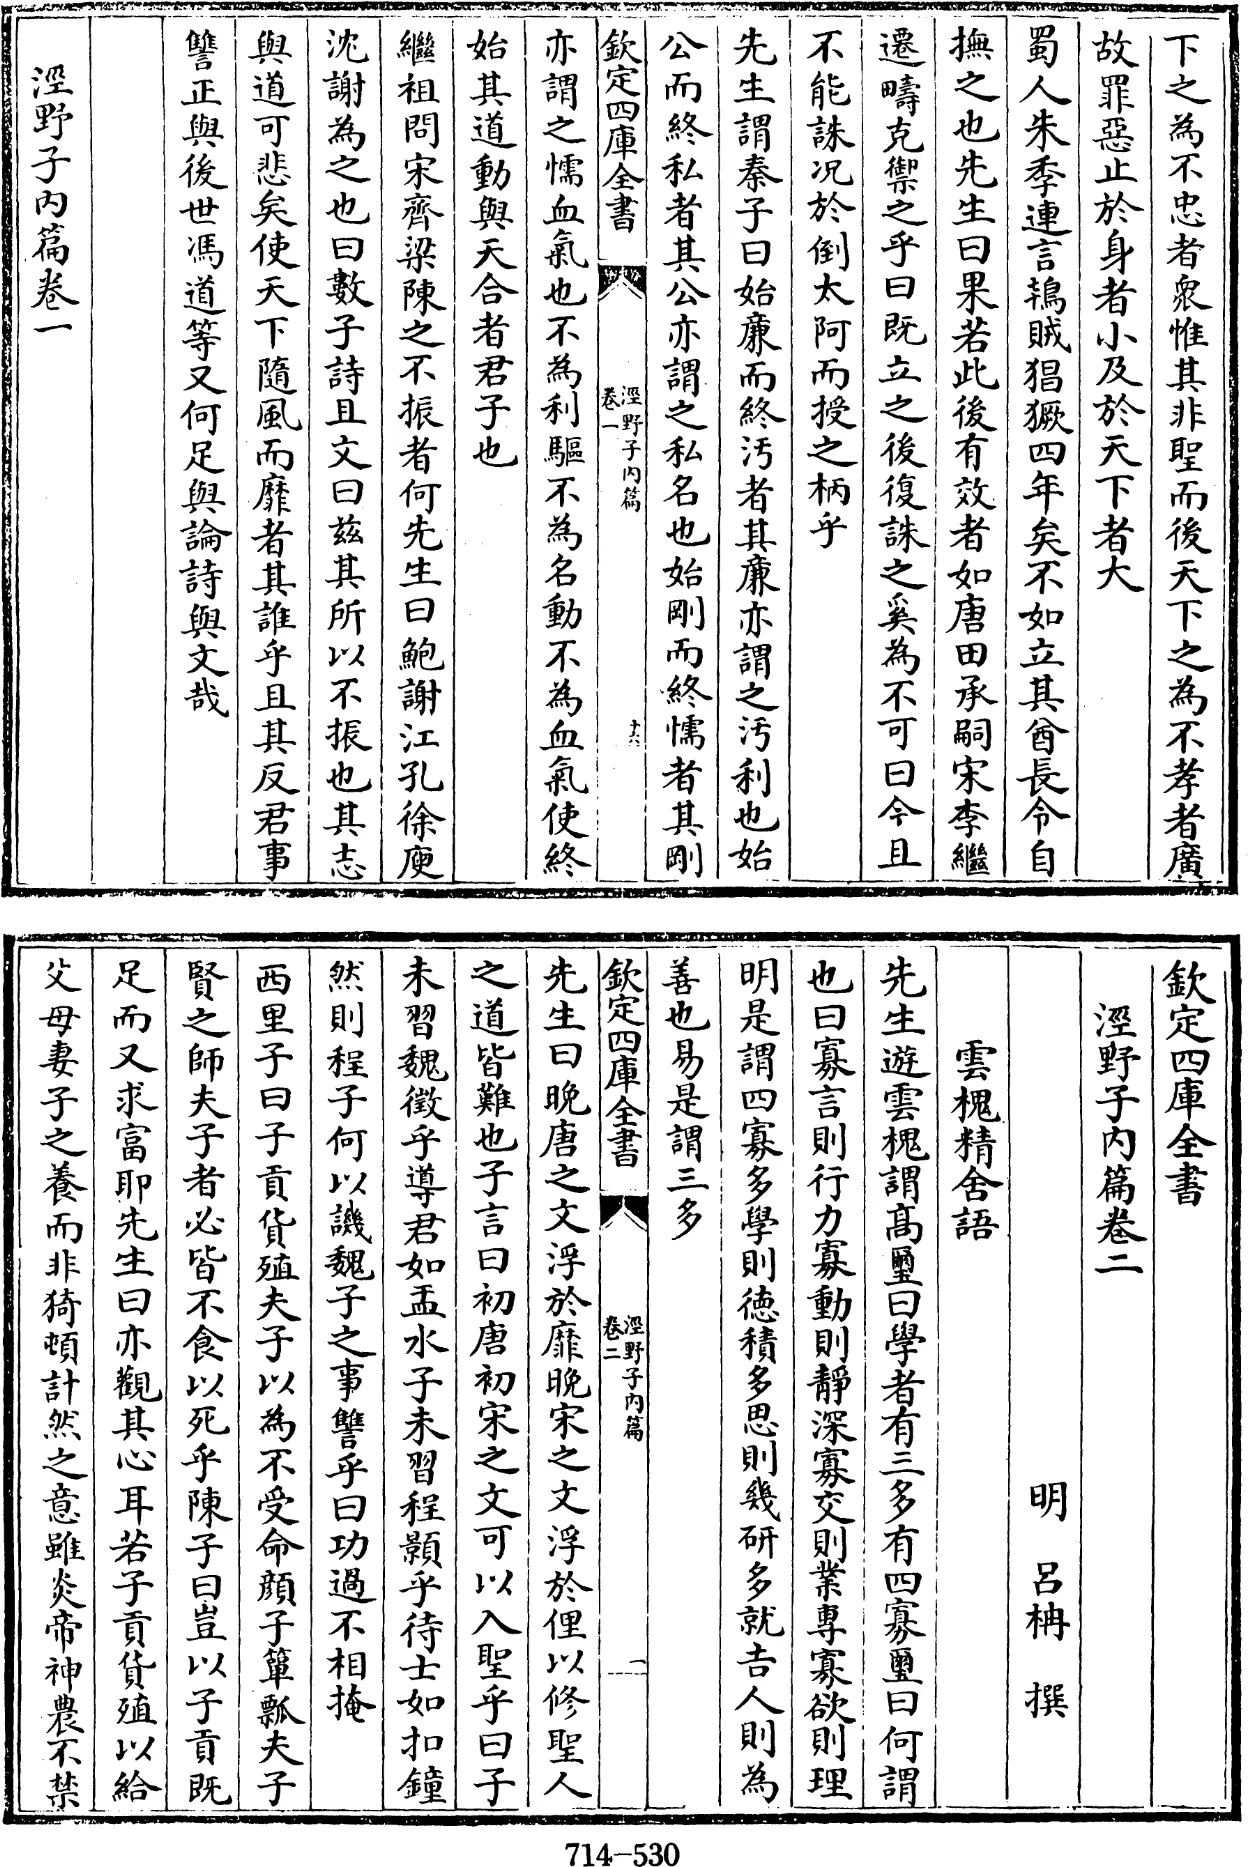 下之為不忠者衆惟其非聖而後天下之為不孝者廣
故罪惡止於身者小及於天下者大
蜀人朱季連言鵏賊猖獗四年矣不如立其酋長令自
撫之也先生曰果若此後有效者如唐田承嗣宋李繼
遷疇克禦之乎曰既立之後復誅之奚為不可曰今且
不能誅况於倒太阿而授之柄乎
先生謂秦子曰始廉而終汚者其廉亦謂之汚利也始
公而終私者其公亦謂之私名也始剛而終懦者其剛
欽定四庫全書
涇野子内篇
卷一
十六
亦謂之懦血氣也不為利驅不為名動不為血氣使終
始其道動與天合者君子也
繼祖問宋齊梁陳之不振者何先生曰鮑謝江孔徐庾
沈謝為之也曰數子詩且文曰兹其所以不振也其志
與道可悲矣使天下隨風而靡者其誰乎且其反君事
讐正與後世馮道等又何足與論詩與文哉
涇野子内篇卷一
欽定四庫全書
涇野子内篇卷二
明 呂柟 撰
雲槐精舍語
先生遊雲槐謂髙璽曰學者有三多有四寡璽曰何謂
也曰寡言則行力寡動則靜深寡交則業專寡欲則理
明是謂四寡多學則德積多思則幾研多就吉人則為
善也易是謂三多
欽定四庫全書
涇野子内篇
卷二
一
先生曰晚唐之文浮於靡晚宋之文浮於俚以修聖人
之道皆難也子言曰初唐初宋之文可以入聖乎曰子
未習魏徵乎導君如盂水子未習程顥乎待士如扣鐘
然則程子何以譏魏子之事讐乎曰功過不相掩
西里子曰子貢貨殖夫子以為不受命顔子簞瓢夫子
賢之師夫子者必皆不食以死乎陳子曰豈以子貢既
足而又求富耶先生曰亦觀其心耳若子貢貨殖以給
父母妻子之養而非猗頓計然之意雖炎帝神農不禁
714-530